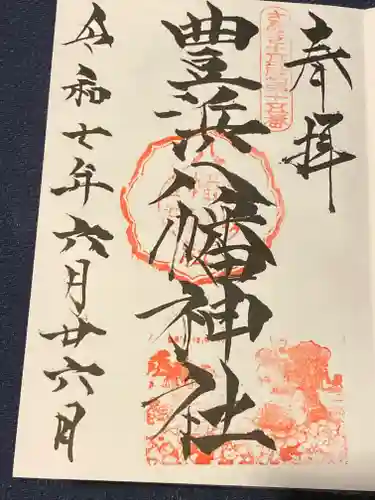 奉拝
豊浜八幡神社
令和七年六月廿六月